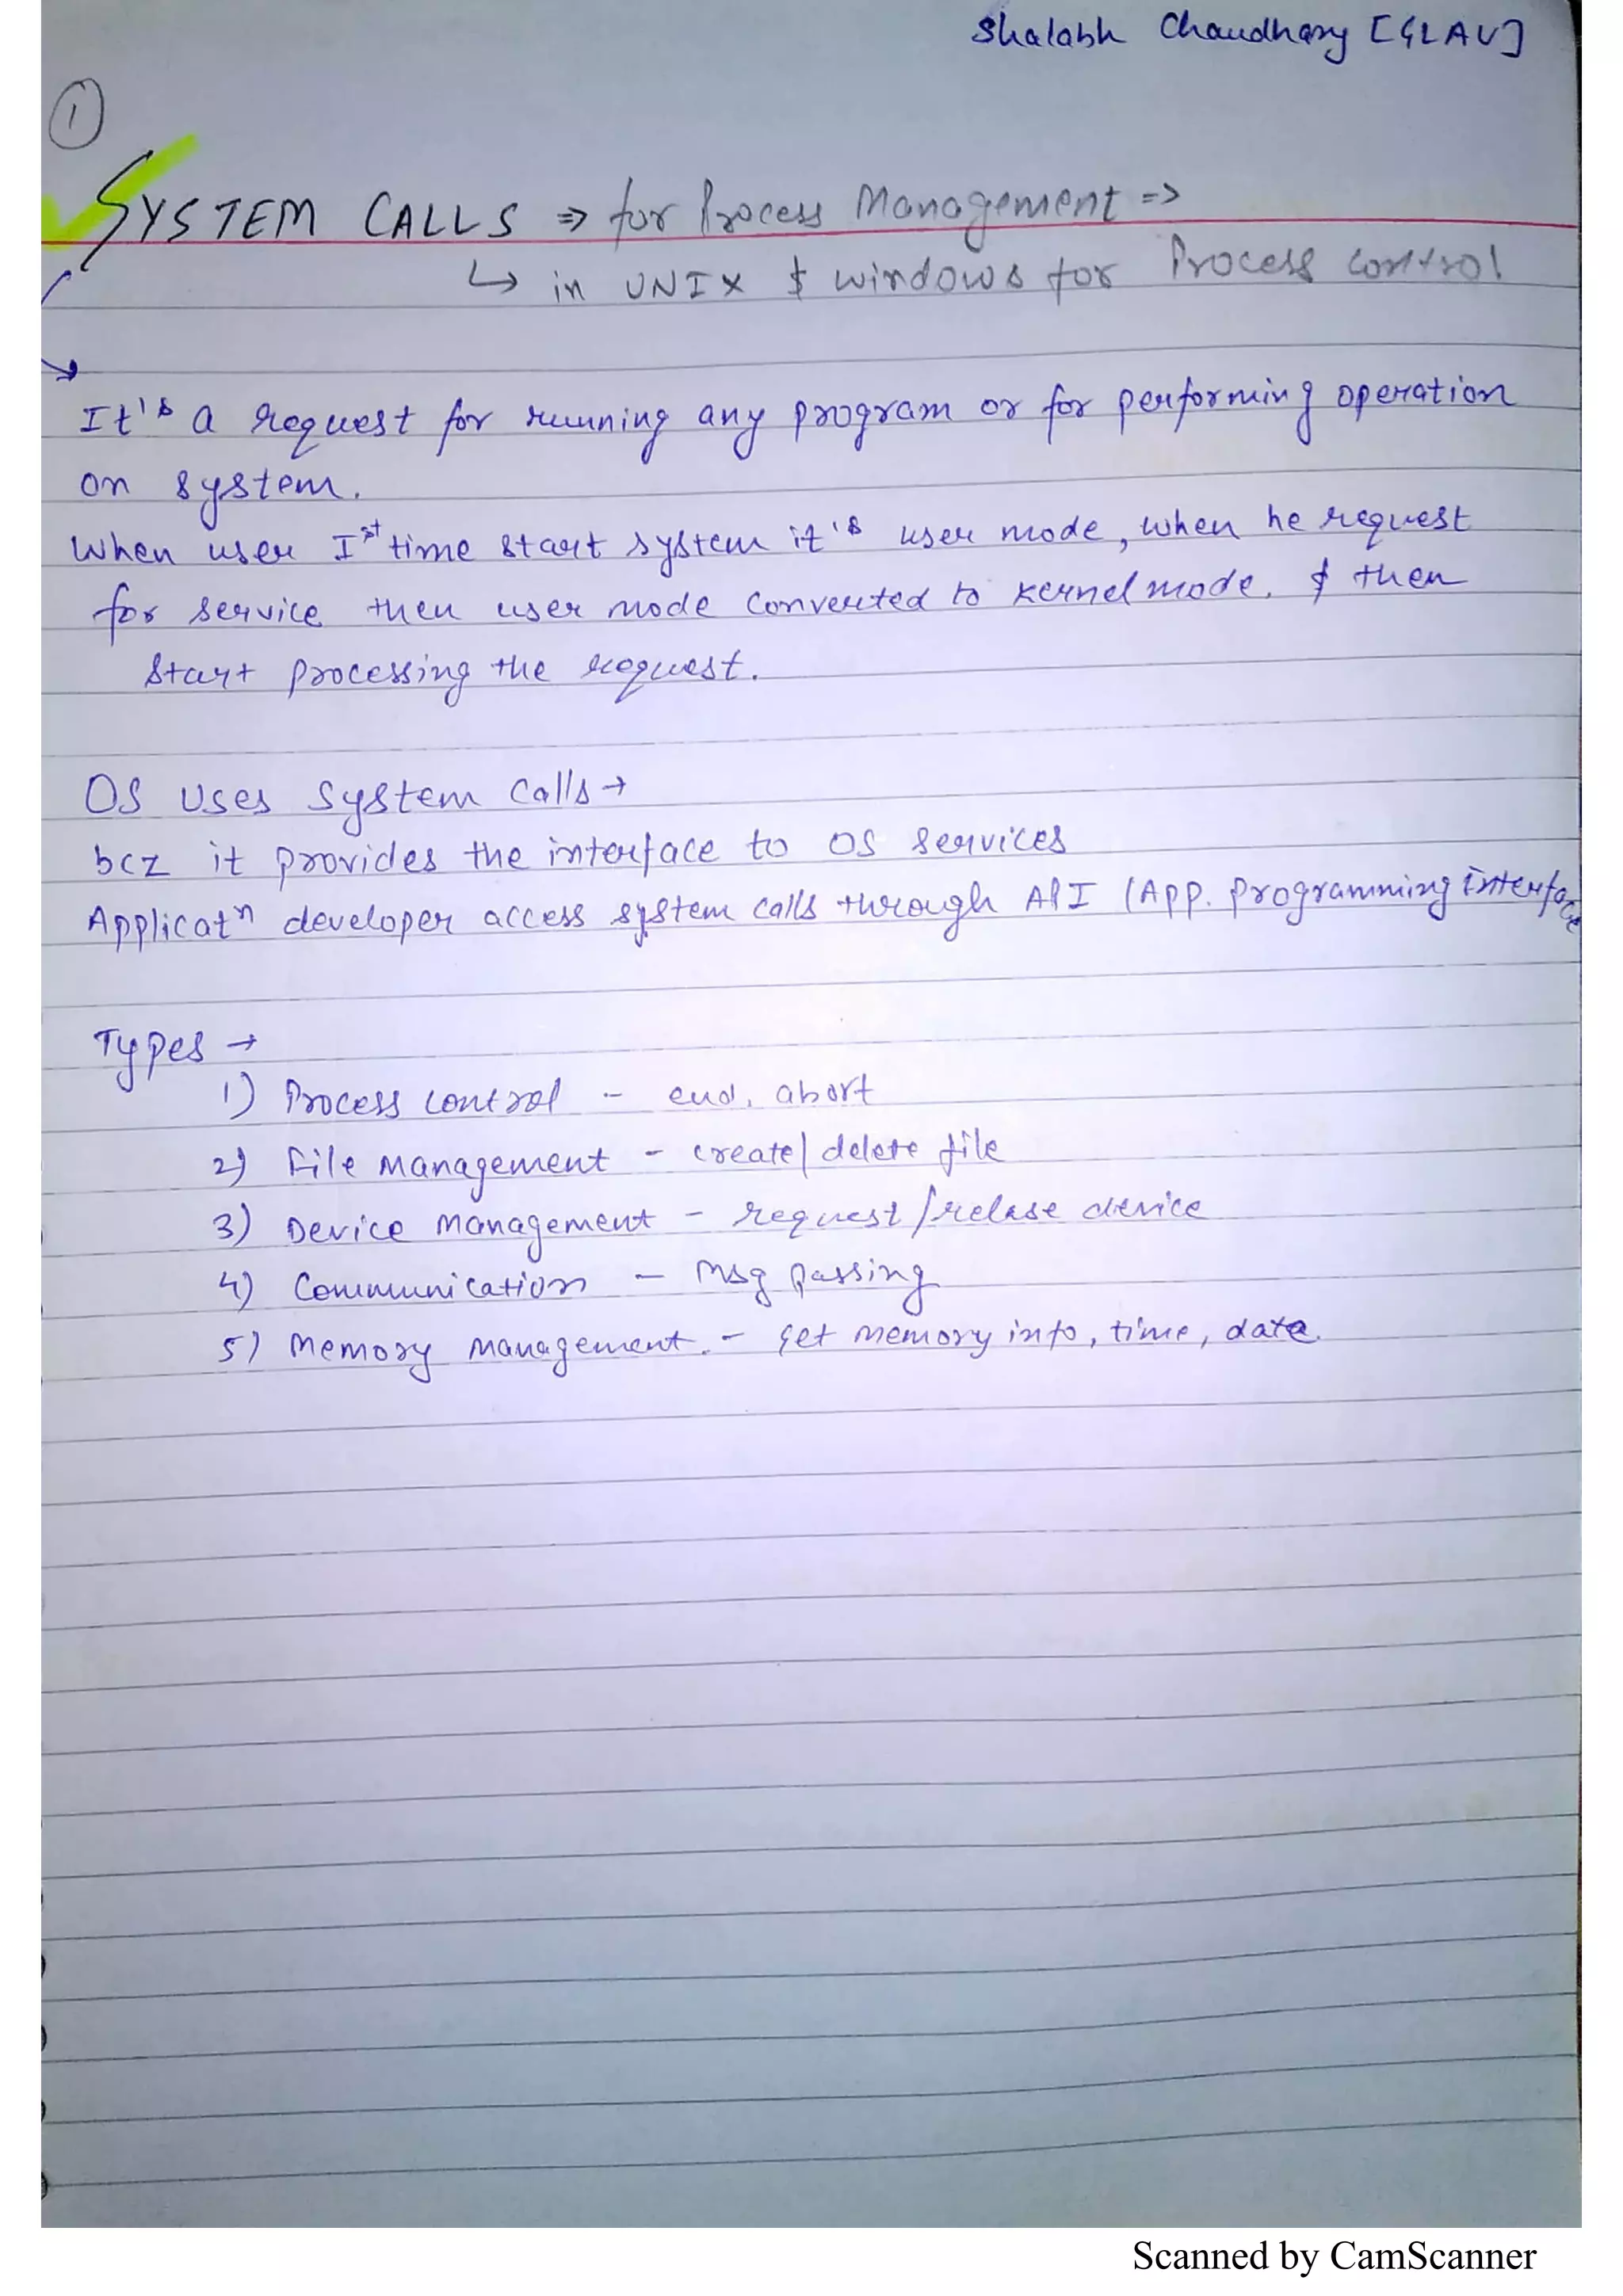 Shalabh Chaudhary [GLAU]
1
SYSTEM CALLS ⇒ for Process Management =>
↳ in UNIX & windows for Process control
→
It's a request for running any program or for performing operation
on system.
When user Ist time start system it's user mode, when he request
for service then user mode converted to kernel mode. & then
start processing the request.
OS uses System calls →
bcz it provides the interface to OS services
Applicatn developer access system calls through API (App. Programming Interface
Types →
1) Process control - end, abort
2) File Management - create/delete file
3) Device Management - request/relase device
4) Communication - Msg passing
5) Memory Management. - Get memory info, time, date.
Scanned by CamScanner